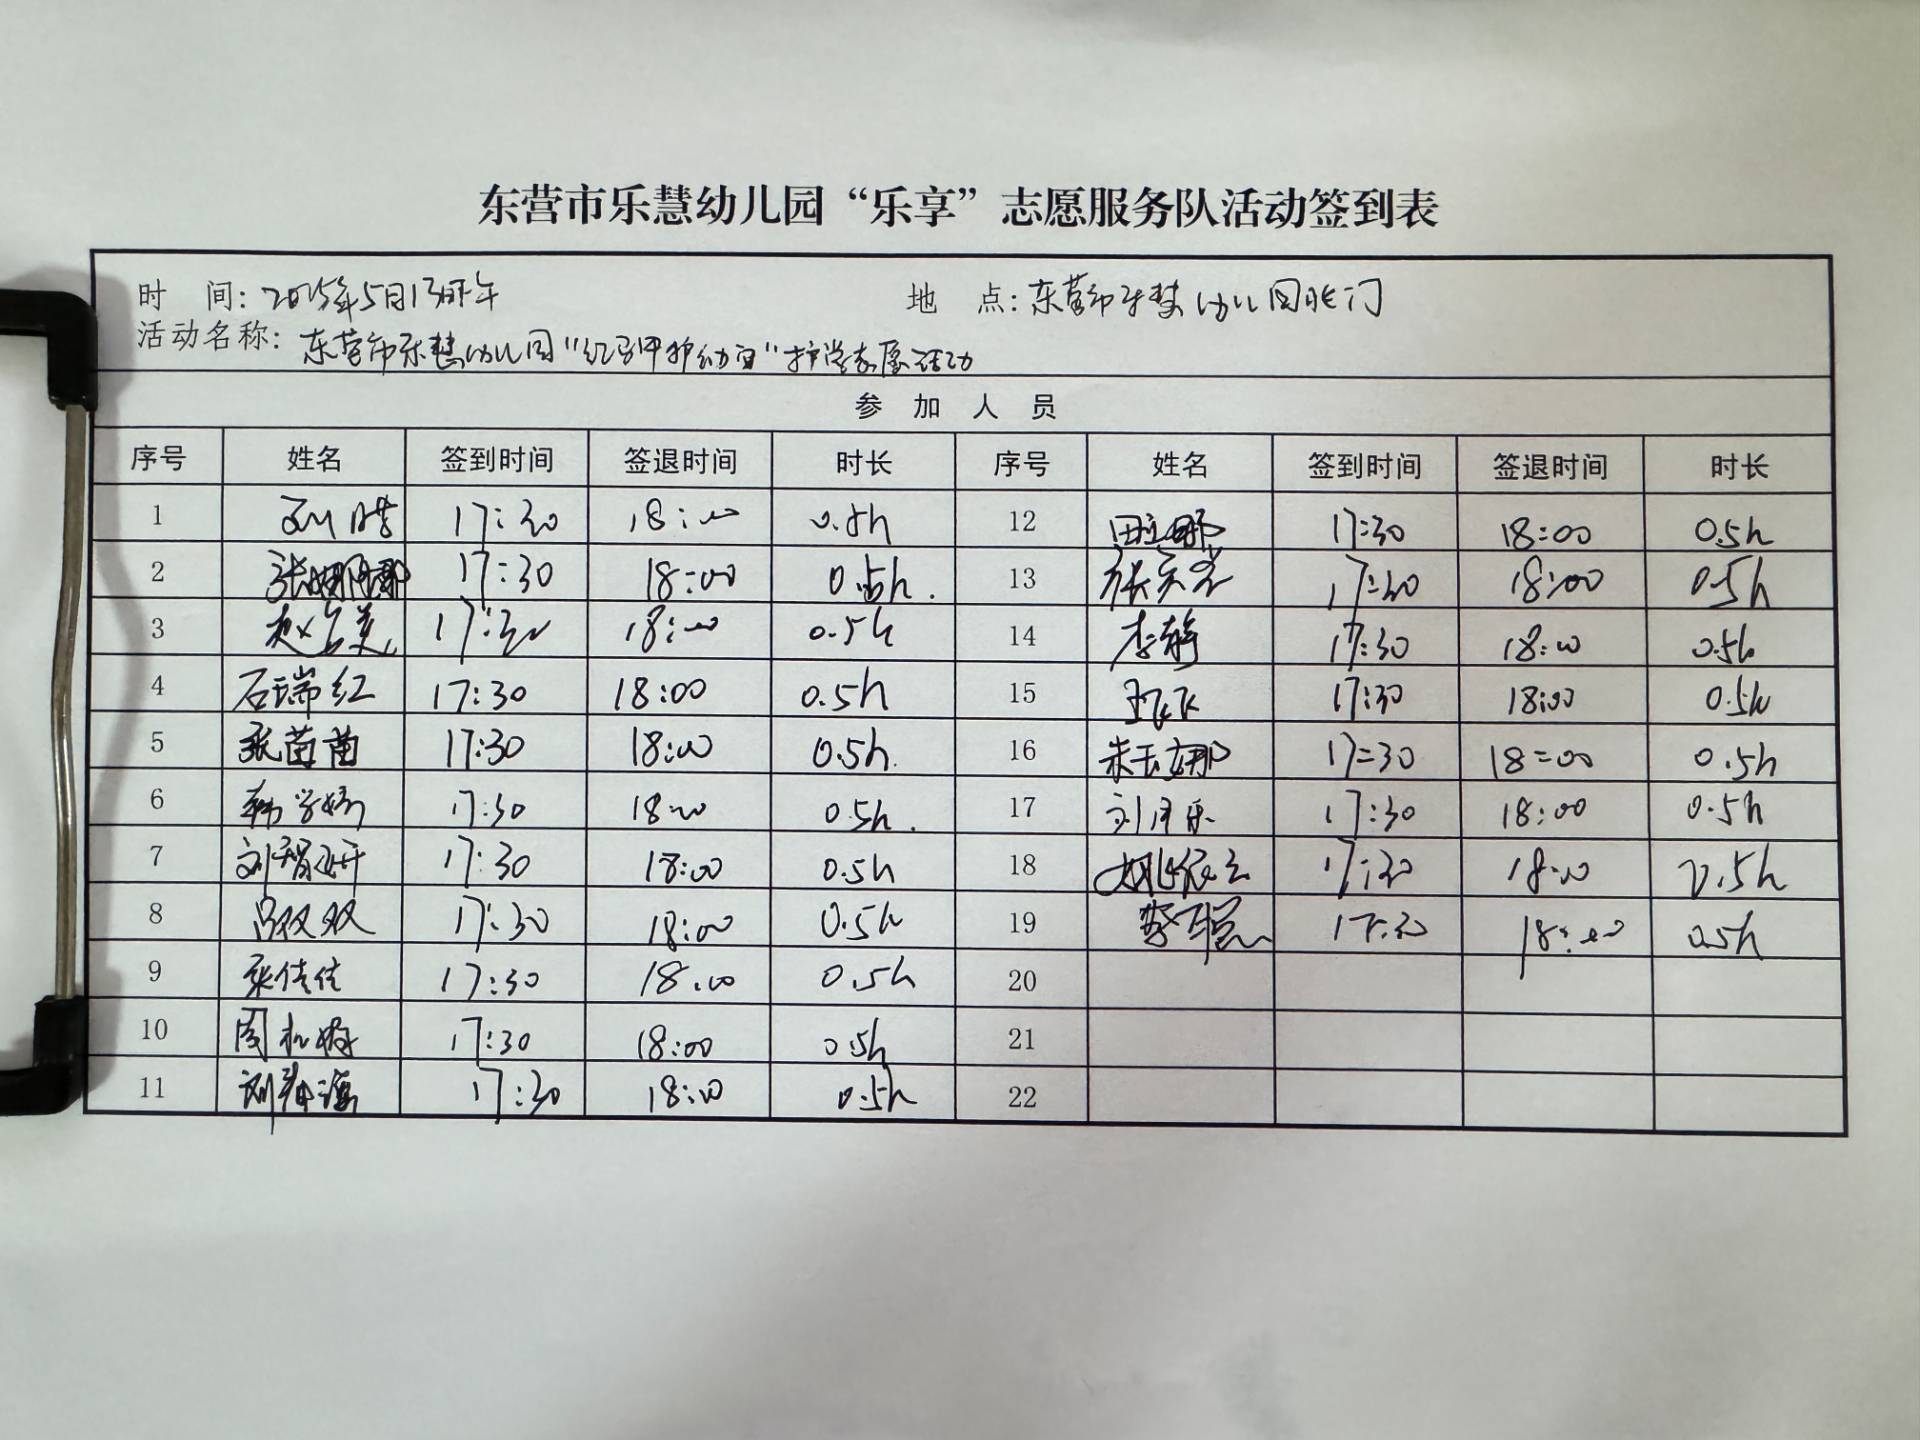 东营市乐慧幼儿园“乐享”志愿服务队活动签到表
时 间：2025年5月13日下午 地 点：东营市乐慧幼儿园北门
活动名称：东营市乐慧幼儿园“红马甲护幼苗”护学志愿活动
参 加 人 员
序号 姓名 签到时间 签退时间 时长 序号 姓名 签到时间 签退时间 时长
1 17:30 18:00 0.5h 12 17:30 18:00 0.5h
2 张娜娜 17:30 18:00 0.5h. 13 17:30 18:00 0.5h
3 17:30 18:00 0.5h 14 17:30 18:00 0.5h
4 石瑞红 17:30 18:00 0.5h 15 王飞飞 17:30 18:00 0.5h
5 张苗苗 17:30 18:00 0.5h. 16 朱玉娜 17:30 18:00 0.5h
6 韩学娇 17:30 18:00 0.5h. 17 17:30 18:00 0.5h
7 刘智妍 17:30 18:00 0.5h 18 姚依云 17:30 18:00 0.5h
8 吕双双 17:30 18:00 0.5h 19 17:30 18:00 0.5h
9 张佳佳 17:30 18:00 0.5h 20
10 17:30 18:00 0.5h 21
11 17:30 18:00 0.5h 22